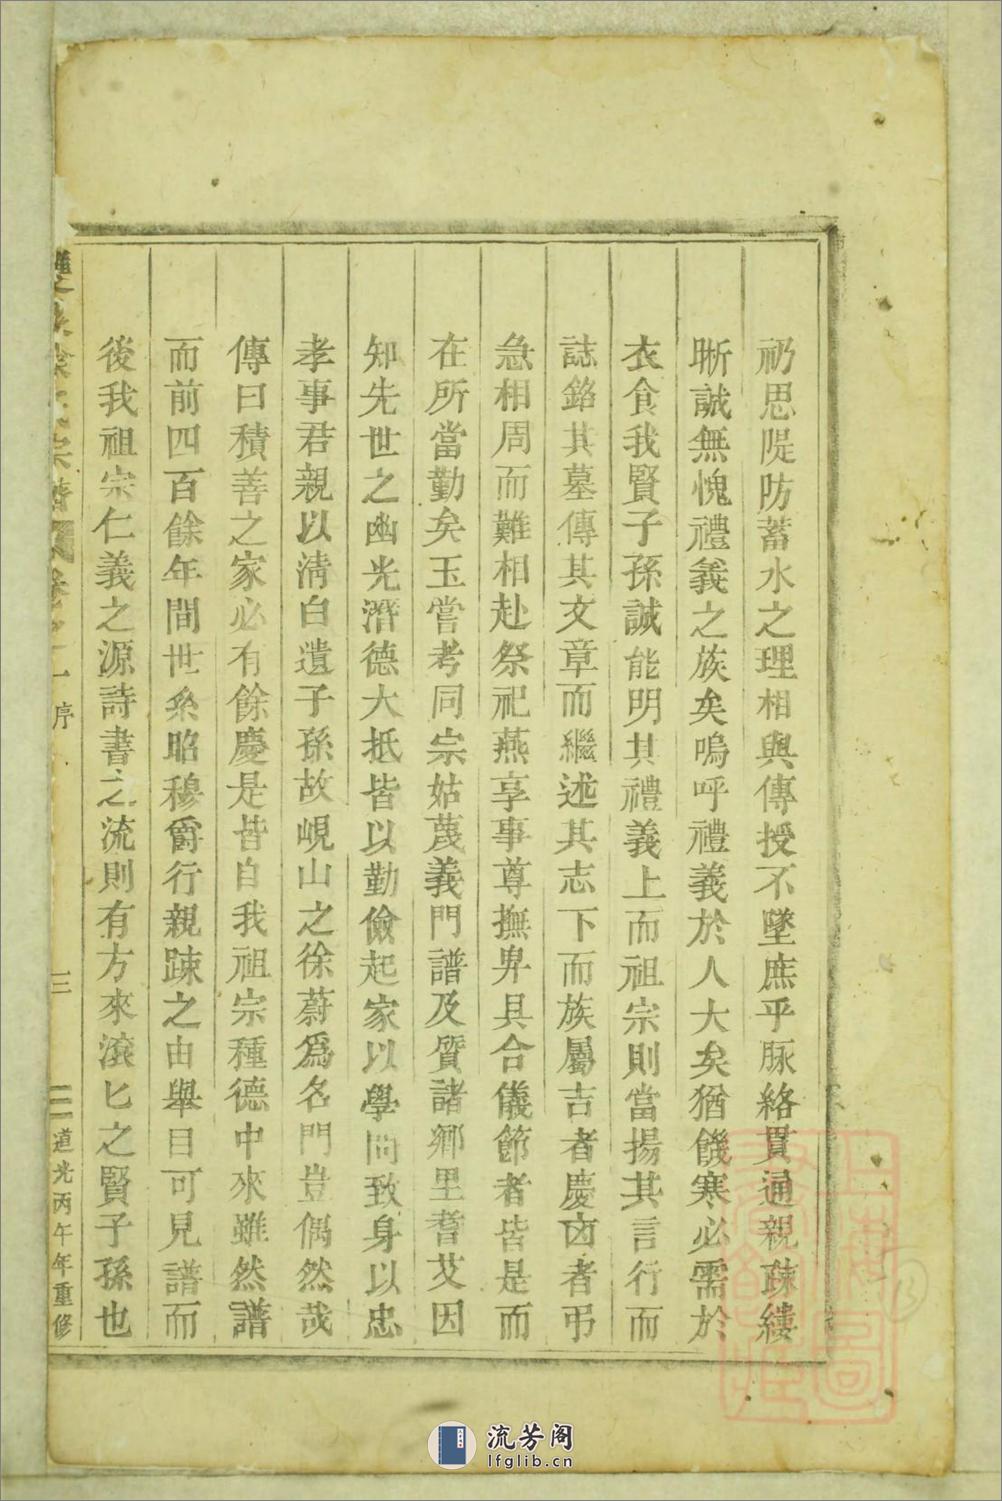 礽思隄防蓄水之理相與傳授不墜庶乎脉絡貫通親疎縷
晰誠無愧禮義之族矣嗚呼禮義於人大矣猶饑寒必需於
衣食我賢子孫誠能明其禮義上而祖宗則當揚其言行而
誌銘其墓傳其文章而繼述其志下而族屬吉者慶凶者弔
急相周而難相赴祭祀燕享事尊撫畀具合儀節者皆是而
在所當勤矣玉嘗考同宗姑蔑義門譜及質諸鄉里耆艾因
知先世之幽光潛德大抵皆以勤儉起家以學問致身以忠
孝事君親以清白遺子孫故峴山之徐蔚爲名門豈偶然哉
傳曰積善之家必有餘慶是皆自我祖宗種德中來雖然譜
而前四百餘年間世系昭穆爵行親疎之由舉目可見譜而
後我祖宗仁義之源詩書之流則有方來滾匕之賢子孫也
宗譜 卷之一 序 三 道光丙午年重修
上海圖書館藏
流芳阁
lfglib.cn